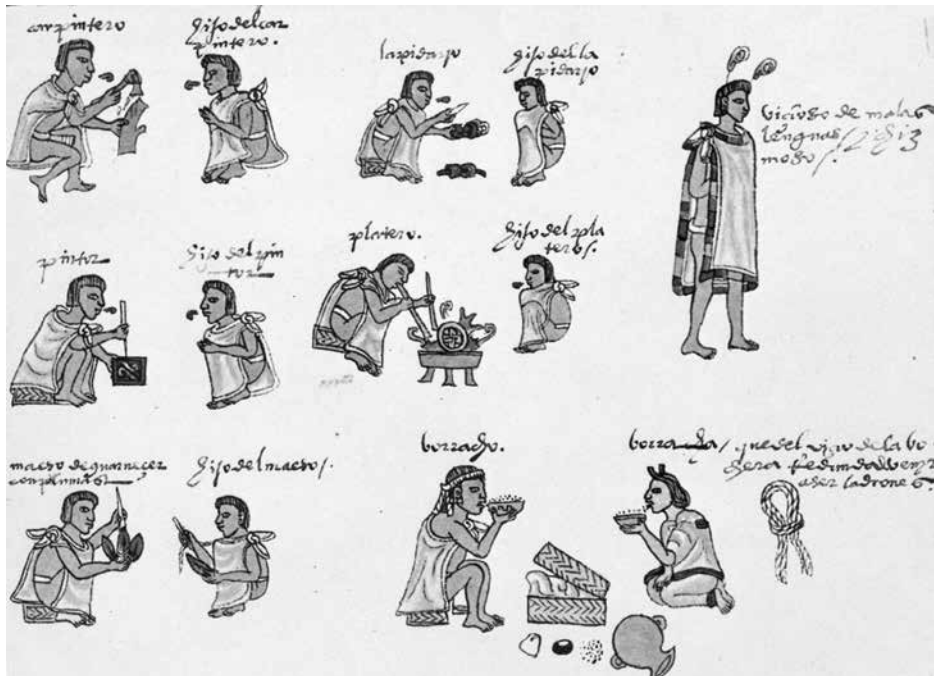 carpintero
hijo del car
pintero.
lapidario
hijo del la
pidario
vicioso de malas
lenguas / chiz
moso /.
pintor
hijo del pin
tor
platero.
hijo del pla
tero /.
maeso de guarnecer
con plumas
hijo del maeso /.
borracho.
borracha / que del vizio de la bo
rrachera
a ser ladrones.